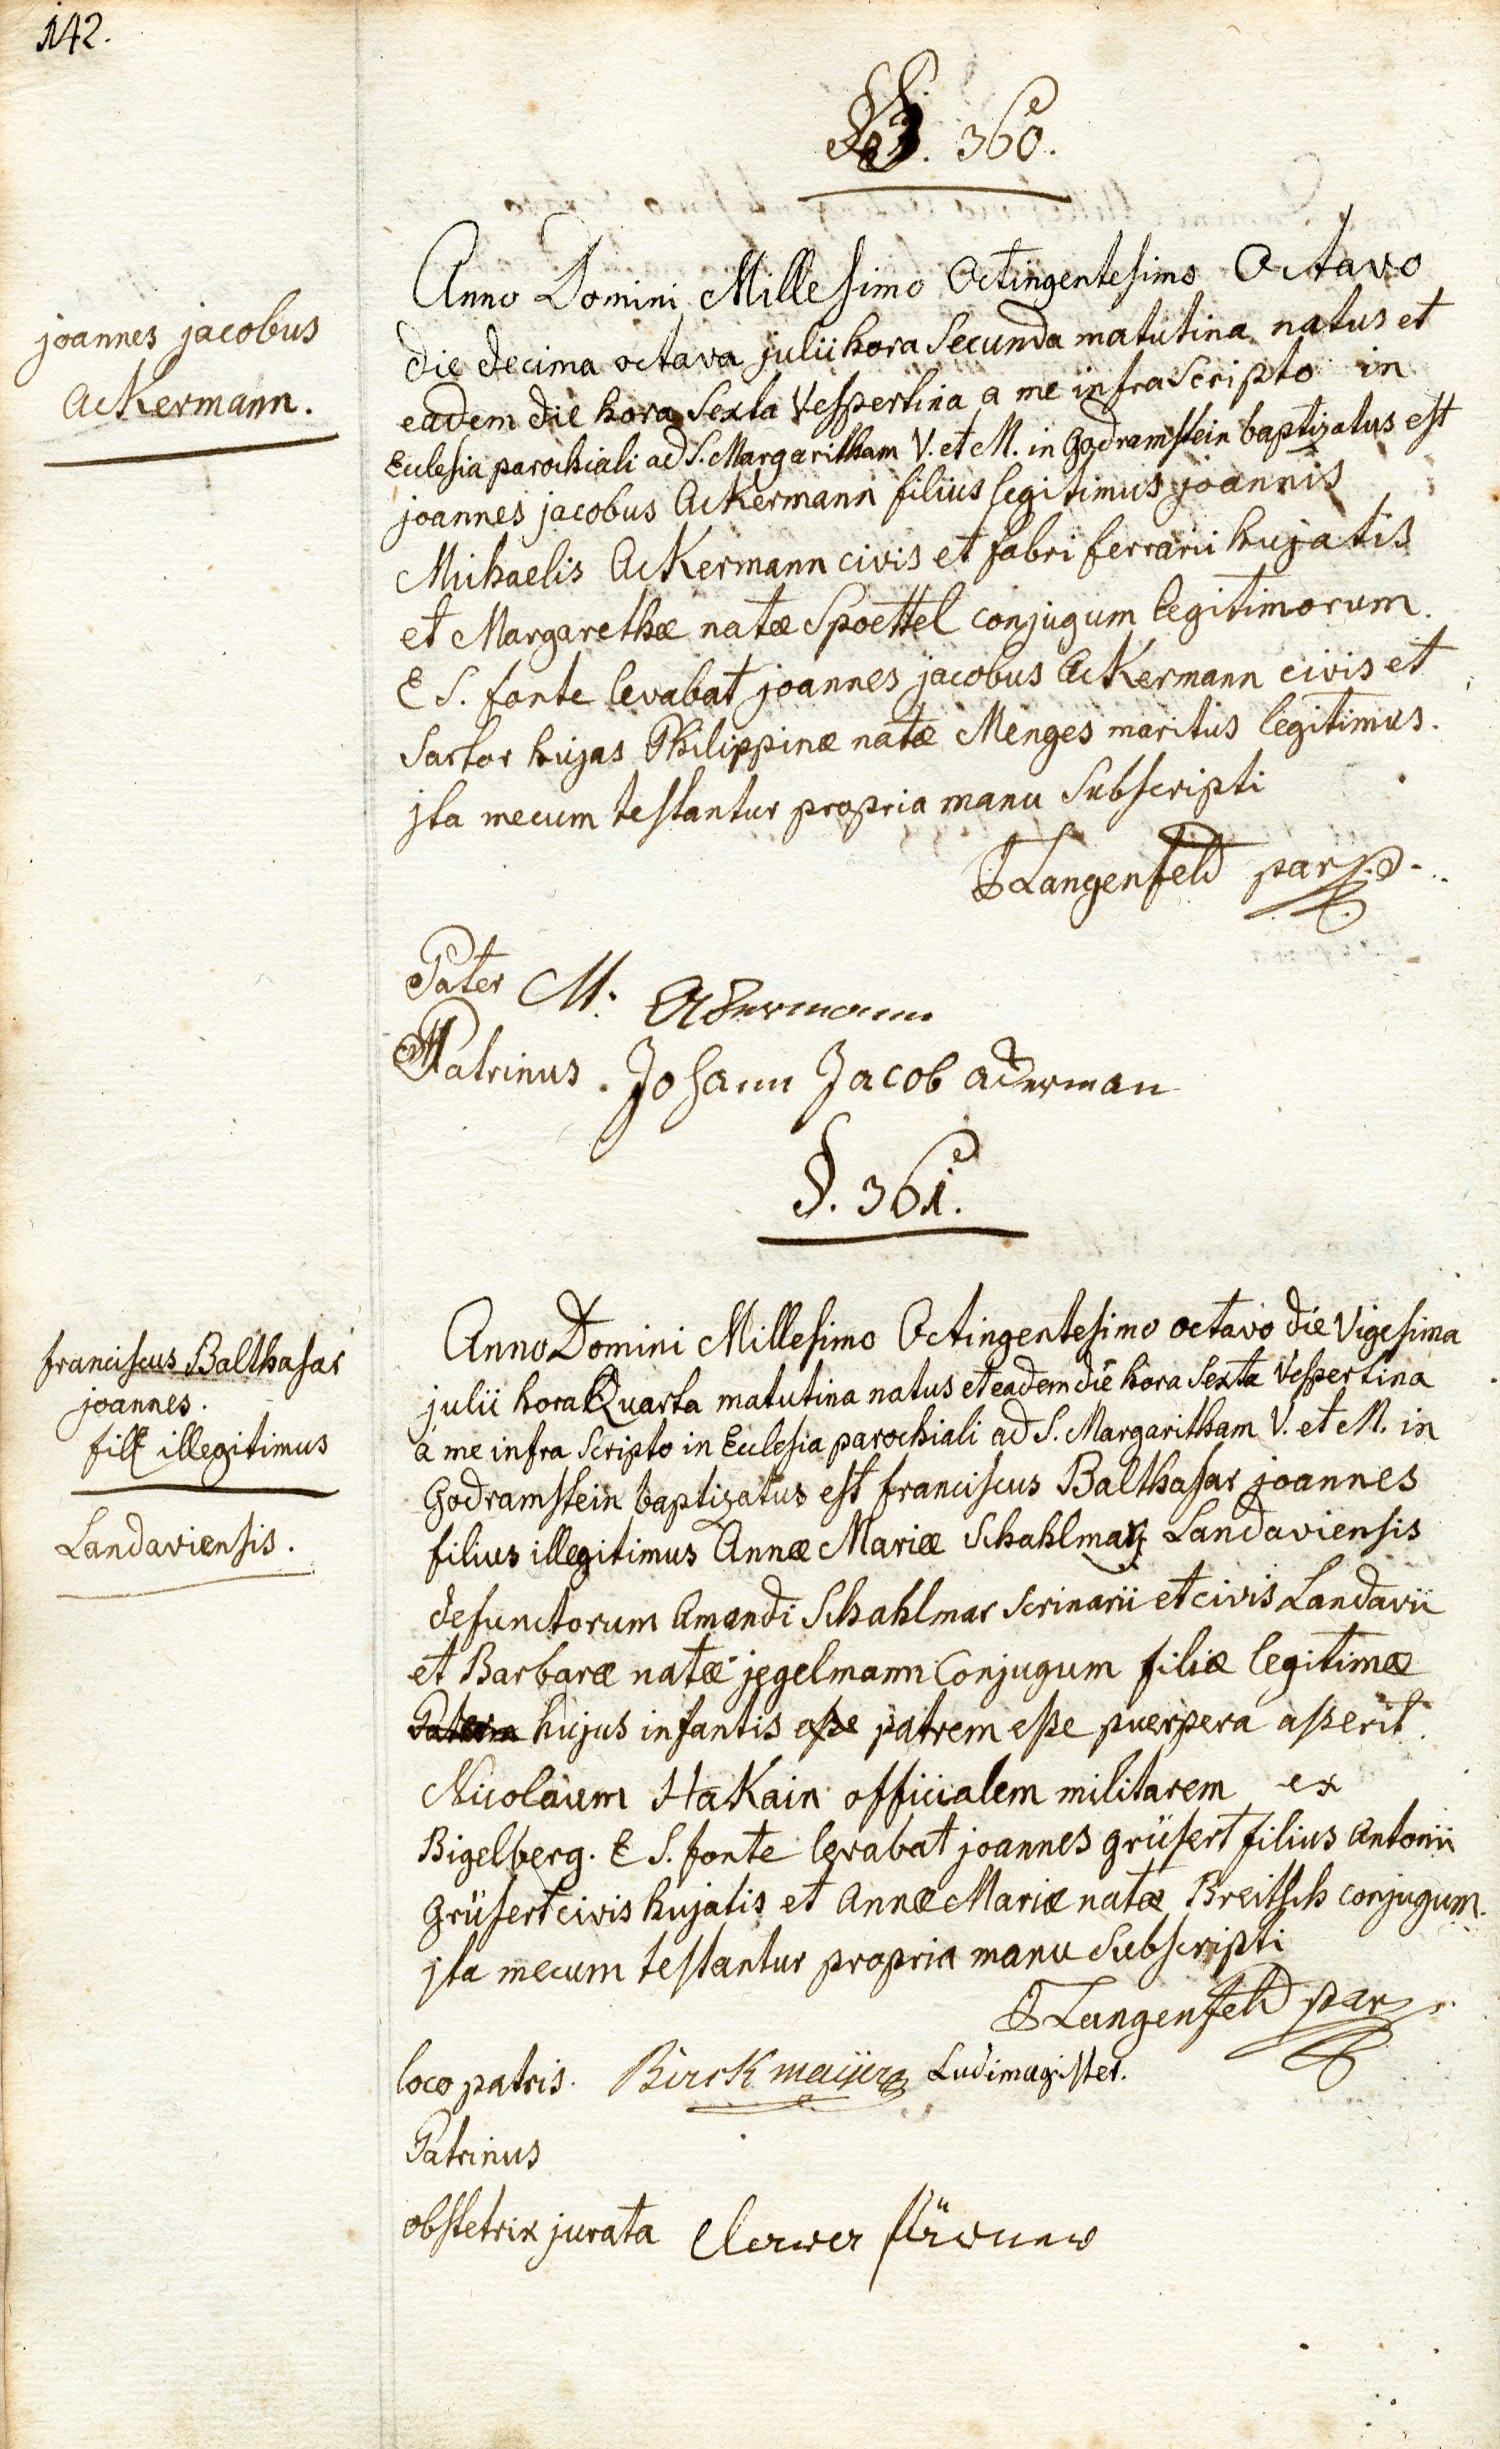 142.
§. 360.
joannes jacobus
Ackermann.
Anno Domini Millesimo Octingentesimo Octavo
die decima octava julii hora Secunda matutina natus et
eadem die hora Sexta Vespertina a me infra Scripto in
Ecclesia parochiali ad S. Margaritham V. et M. in Godramstein baptizatus est
joannes jacobus Ackermann filius legitimus joannis
Michaelis Ackermann civis et fabri ferrarii hujatis
et Margarethæ natæ Spoettel conjugum legitimorum.
E S. fonte levabat joannes jacobus Ackermann civis et
Sartor hujas Philippinæ natæ Menges maritus legitimus.
jta mecum testantur propria manu Subscripti
Langenfeld par
Pater M. Ackermann
Patrinus. Johann Jacob ackerman
§. 361.
franciscus Balthasar
joannes.
fil illegitimus
Landaviensis.
Anno Domini Millesimo Octingentesimo octavo die Vigesima
julii hora Quarta matutina natus et eadem die hora Sexta Vespertina
a me infra Scripto in Ecclesia parochiali ad S. Margaritham V. et M. in
Godramstein baptizatus est franciscus Balthasar joannes
filius illegitimus Annæ Mariæ Schahlmar Landaviensis
defunctorum Amandi Schahlmar Scrinarii et civis Landavii
et Barbaræ natæ jegelmann Conjugum filiæ legitimæ
hujus infantis eße patrem eße puerpera aßerit
Nicolaum Hakain officialem militarem ex
Bigelberg. E S. fonte levabat joannes grüsert filius Antonii
grüsert civis hujatis et Annæ Mariæ natæ Breitsch conjugum.
jta mecum testantur propria manu Subscripti
Langenfeld par
loco patris. Birckmaijer Ludimagister.
Patrinus
obstetrix jurata